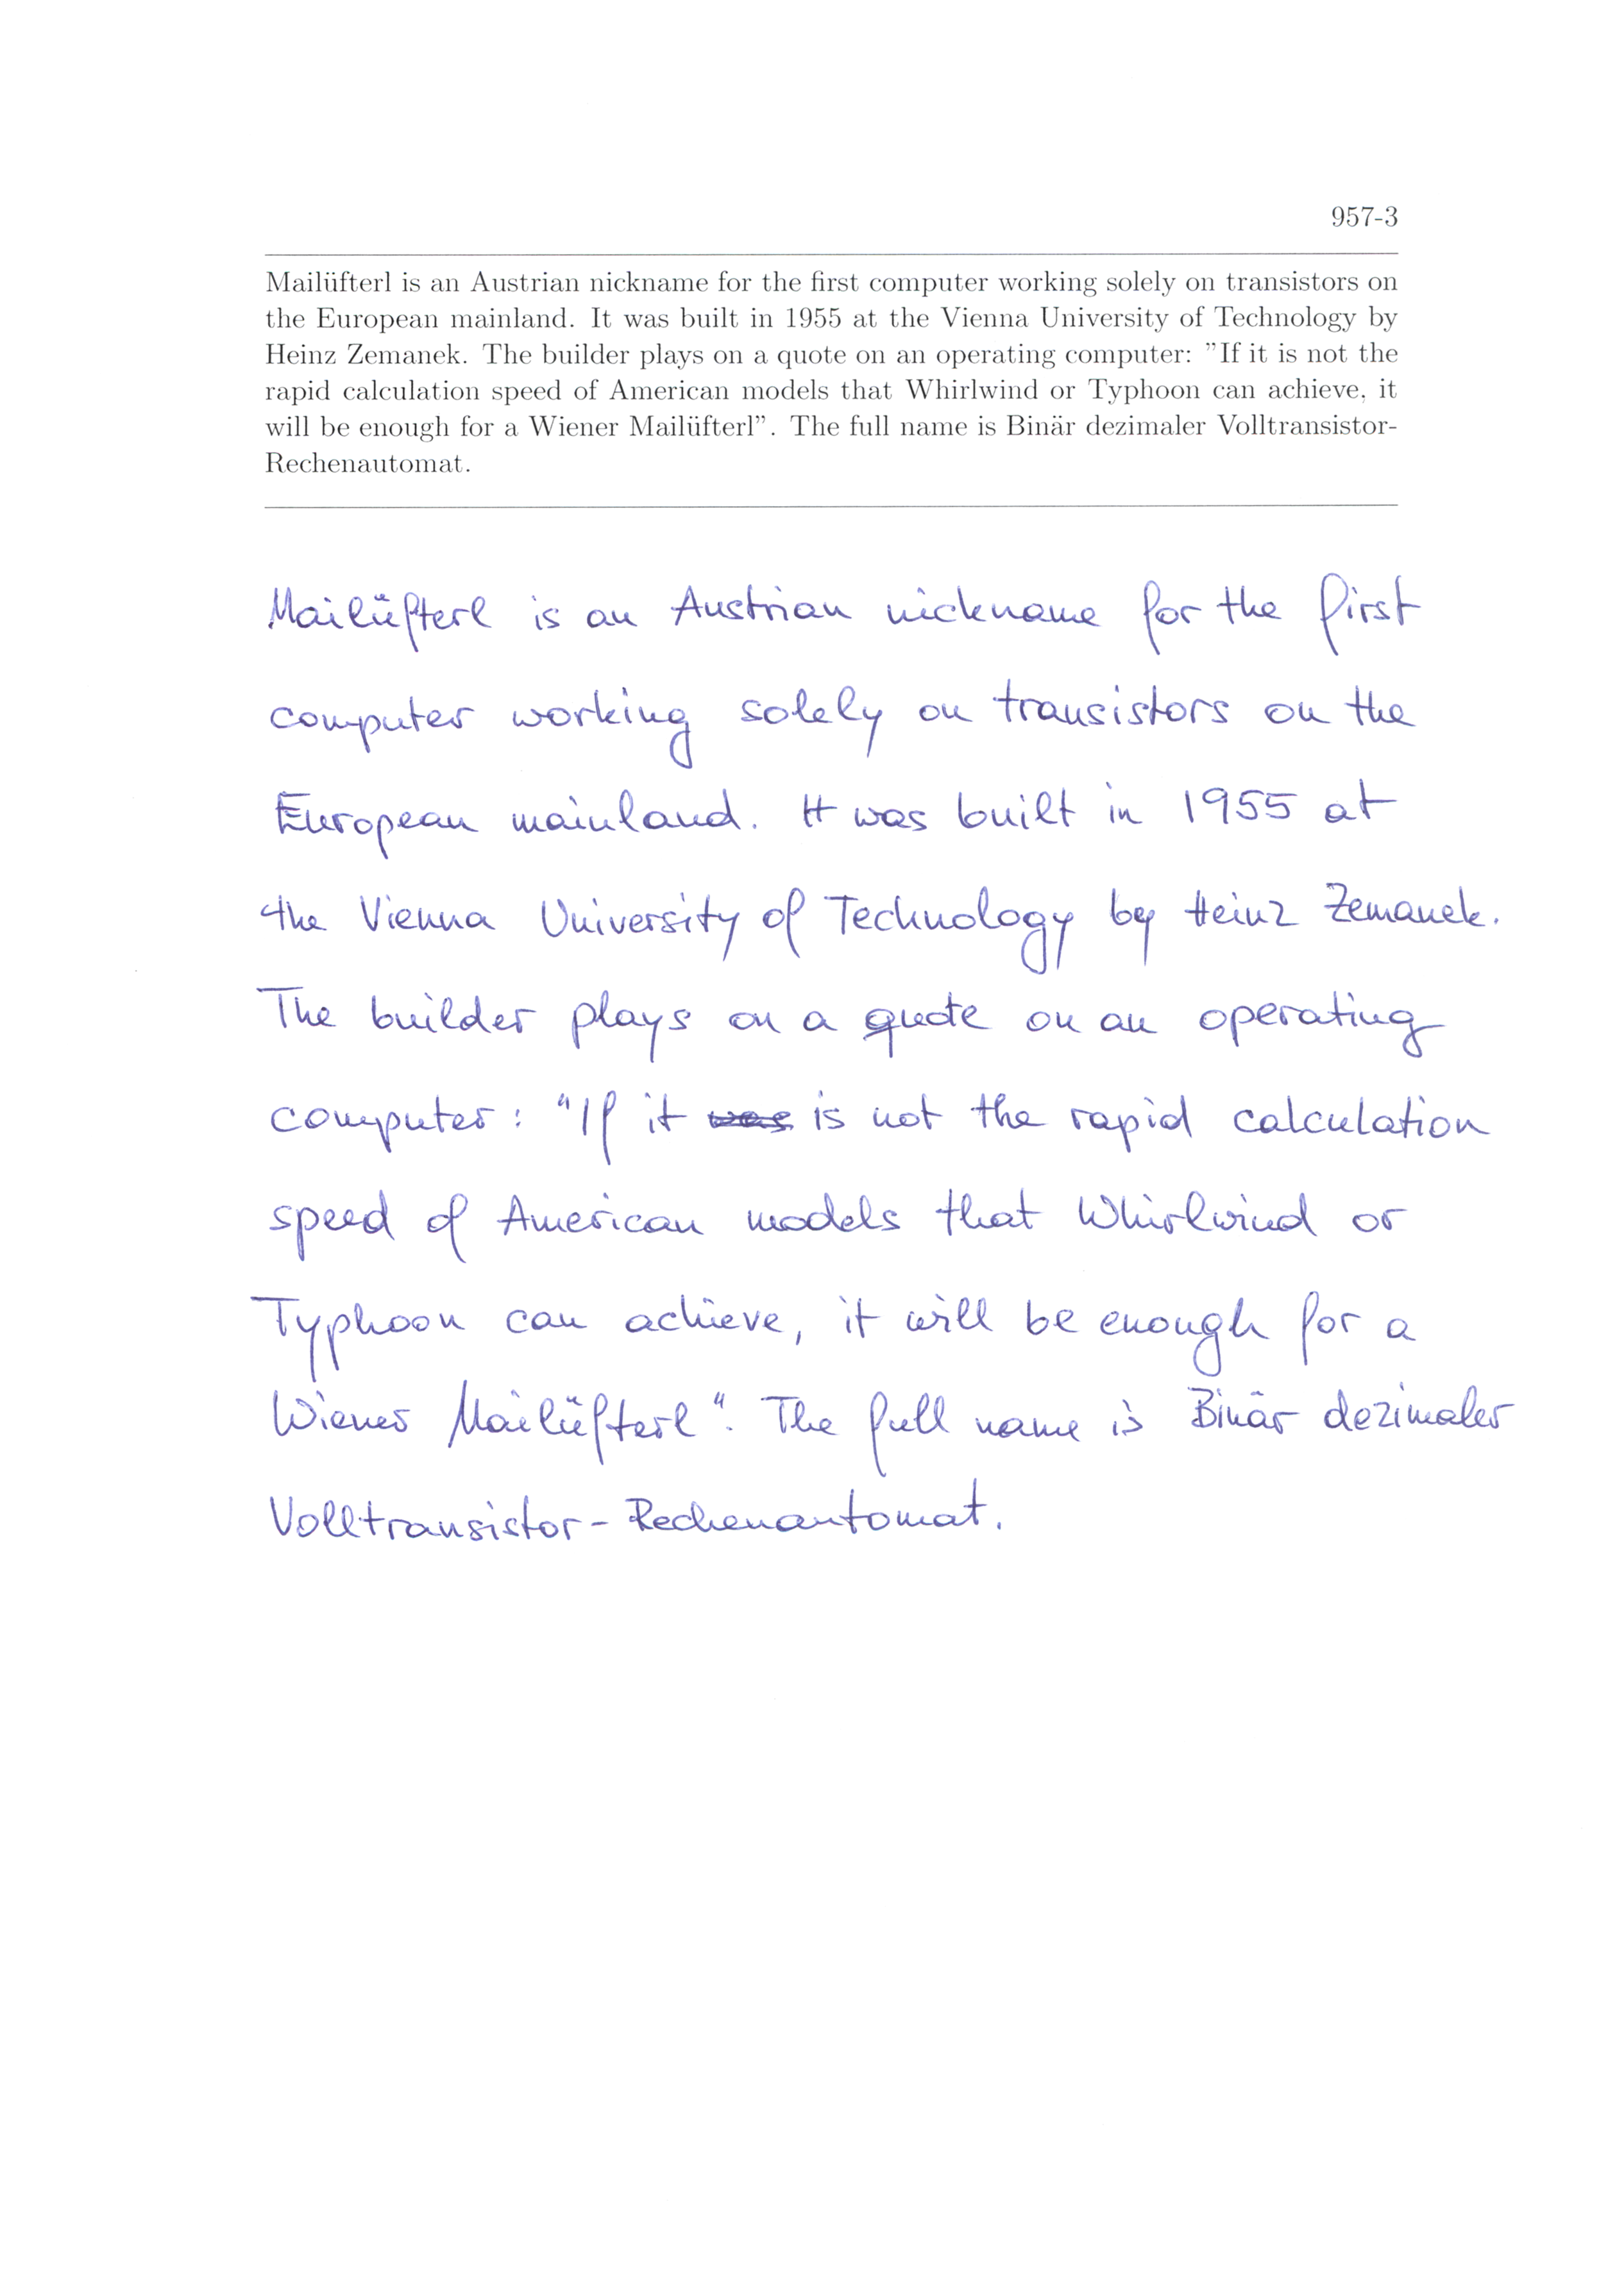 957-3
Mailüfterl is an Austrian nickname for the first computer working solely on transistors on
the European mainland. It was built in 1955 at the Vienna University of Technology by
Heinz Zemanek. The builder plays on a quote on an operating computer: ”If it is not the
rapid calculation speed of American models that Whirlwind or Typhoon can achieve, it
will be enough for a Wiener Mailüfterl”. The full name is Binär dezimaler Volltransistor-
Rechenautomat.
Mailüfterl is an Austrian nickname for the first
computer working solely on transistors on the
European mainland. It was built in 1955 at
the Vienna University of Technology by Heinz Zemanek.
The builder plays on a quote on an operating
computer: “If it was is not the rapid calculation
speed of American models that Whirlwind or
Typhoon can achieve, it will be enough for a
Wiener Mailüfterl“. The full name is Binär dezimaler
Volltransistor-Rechenautomat.